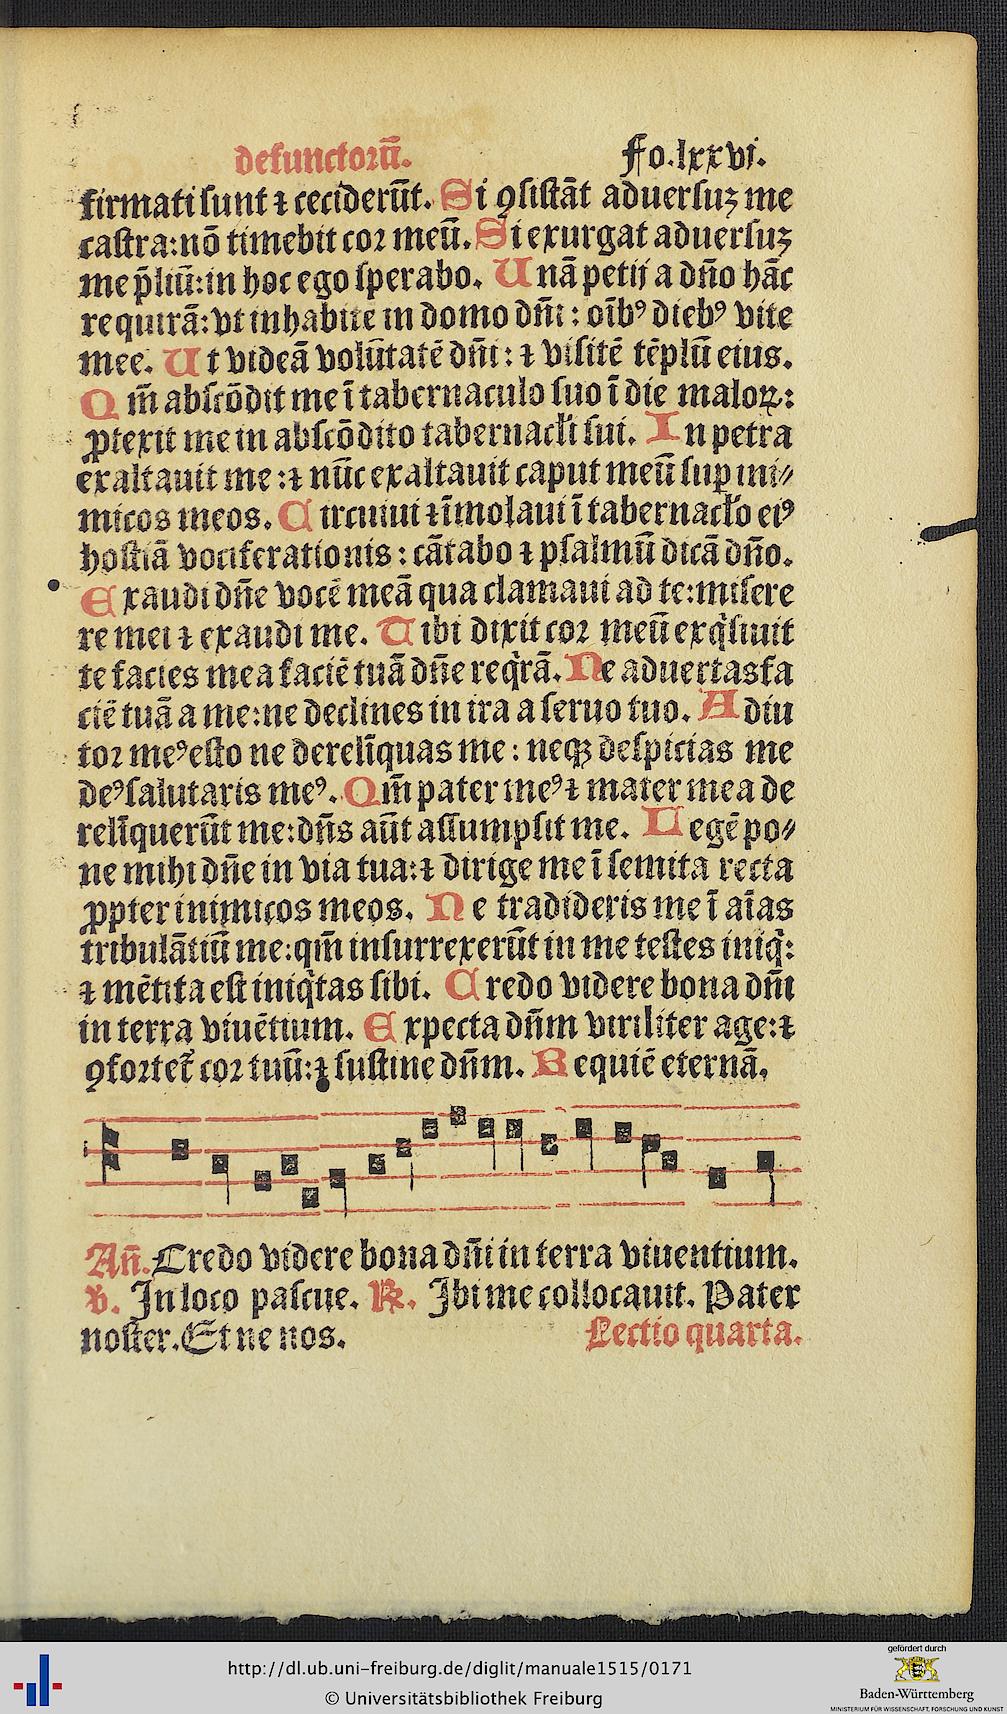 defunctorū. Fo.lxxvi.
firmati sunt ⁊ ceciderūt. Si ꝯsistāt aduersuz me
castra:nō timebit cor meū. Si exurgat aduersuz
me p̄liū:in hoc ego sperabo. Unā petij a dño hāc
requirā:vt inhabitē in domo dñi: oībꝰ diebꝰ vite
mee. Ut videā volūtatē dñi: ⁊ visitē tēplū eius.
Qm̄ abscōdit me ī tabernaculo suo ī die maloꝝ:
ꝓtexit me in abscōdito tabernacl̄i sui. In petra
exaltauit me:⁊ nūc exaltauit caput meū suꝑ ini⸗
micos meos. Circuiui ⁊ īmolaui ī tabernacl̄o eiꝰ
hostiā vociferationis: cātabo ⁊ psalmū dicā dño.
Exaudi dñe vocē meā qua clamaui ad te:misere
re mei ⁊ exaudi me. Tibi dixit cor meū exq̇siuit
te facies mea faciē tuā dñe req̇rā. Ne aduertas fa
ciē tuā a me:ne declines in ira a seruo tuo. Adiu
tor meꝰ esto ne derelīquas me: neqꝫ despicias me
deꝰ salutaris meꝰ. Qm̄ pater meꝰ ⁊ mater mea de
relīquerūt me:dñs aūt assumpsit me. Legē po⸗
ne mihi dñe in via tua:⁊ dirige me ī semita recta
ꝓpter inimicos meos. Ne tradideris me ī aīas
tribulātiū me:qm̄ insurrexerūt in me testes iniq̇:
⁊ mētita est iniq̇tas sibi. Credo videre bona dñi
in terra viuētium. Expecta dñm viriliter age:⁊
ꝯfortet̄ cor tuū:⁊ sustine dñm. Requiē eternā.
Añ. Credo videre bona dñi in terra viuentium.
℣. In loco pascue. ℟. Ibi me collocauit. Pater
noster. Et ne nos. Lectio quarta.
gefördert durch
http://dl.ub.uni-freiburg.de/diglit/manuale1515/0171
© Universitätsbibliothek Freiburg
Baden-Württemberg
MINISTERIUM FÜR WISSENSCHAFT, FORSCHUNG UND KUNST